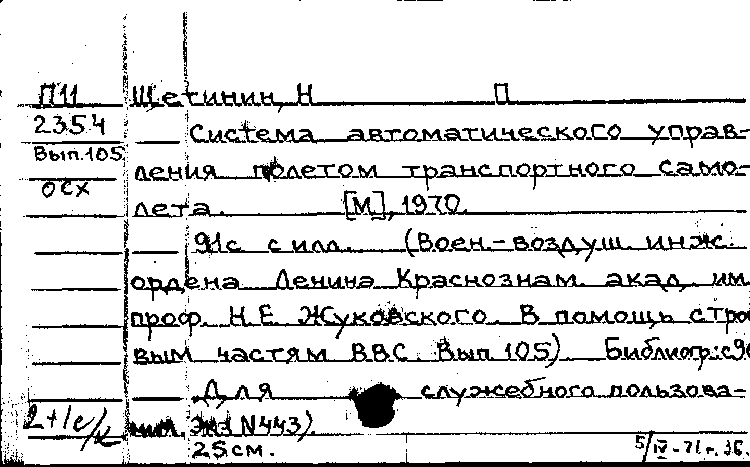 П11 Щетинин, Н П
2354 Система автоматического управ-
Вып.105 ления полетом транспортного само-
ОСХ лета. [М], 1970.
91с с илл. (Воен.-воздуш. инж.
ордена Ленина Краснознам. акад. им.
проф. Н.Е. Жуковского. В помощь строе
вым частям ВВС. Вып 105). Библиогр: с90
Для служебного пользова-
ния. Экз N443).
25см. 5/IV-71г.